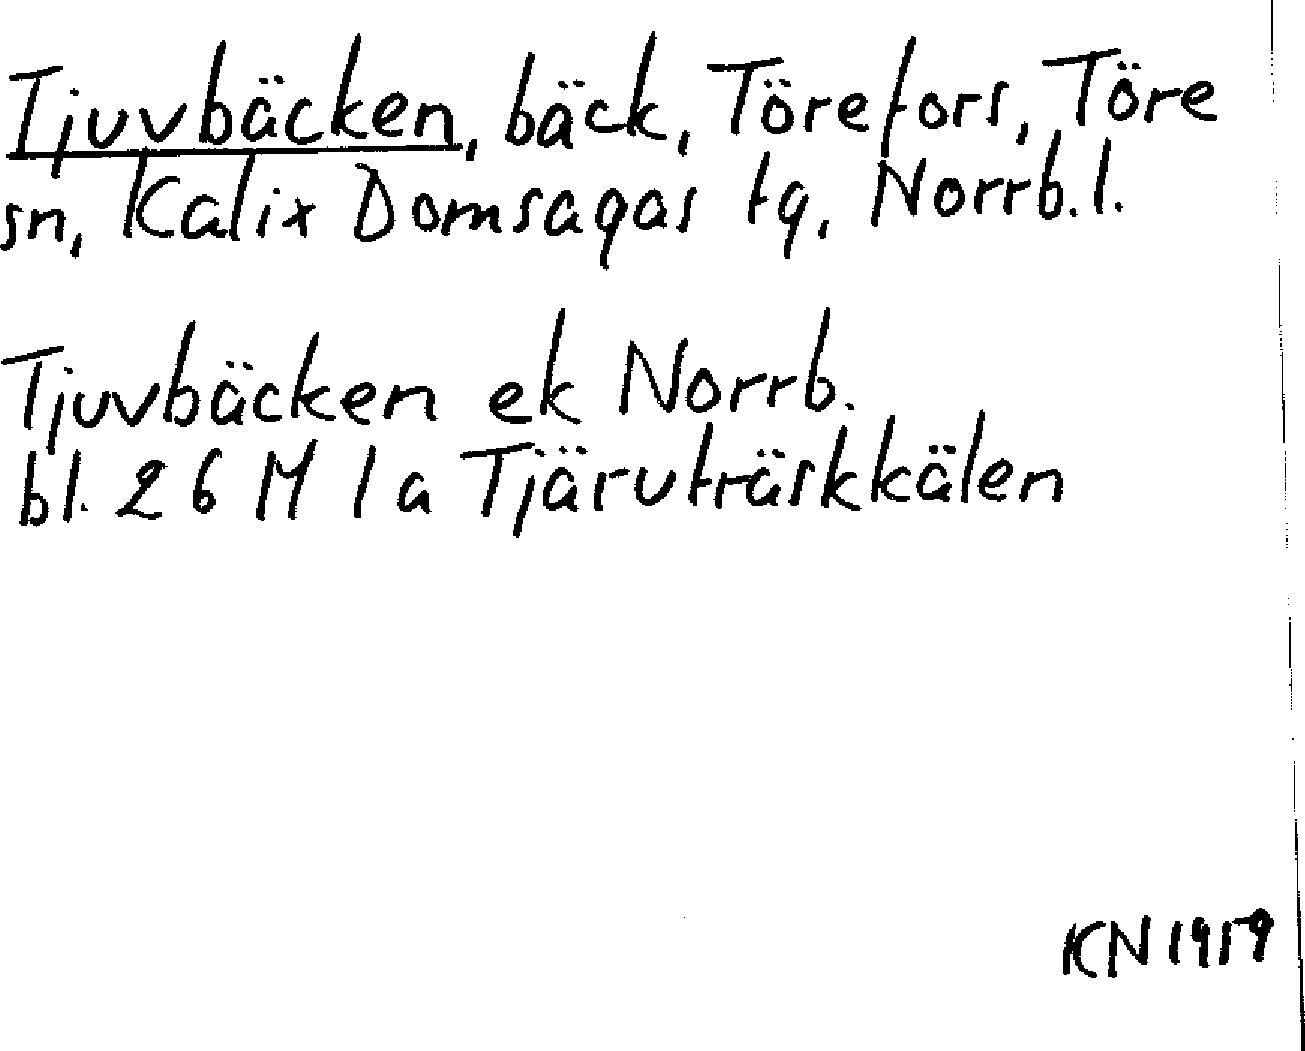 Tjuvbäcken, bäck, Törefors, Töre
sn, Kalix Domsagas tg, Norrb. l.
Tjuvbäcken ek Norrb.
bl. 26 M 1 a Tjäruträskkälen
KN 1959